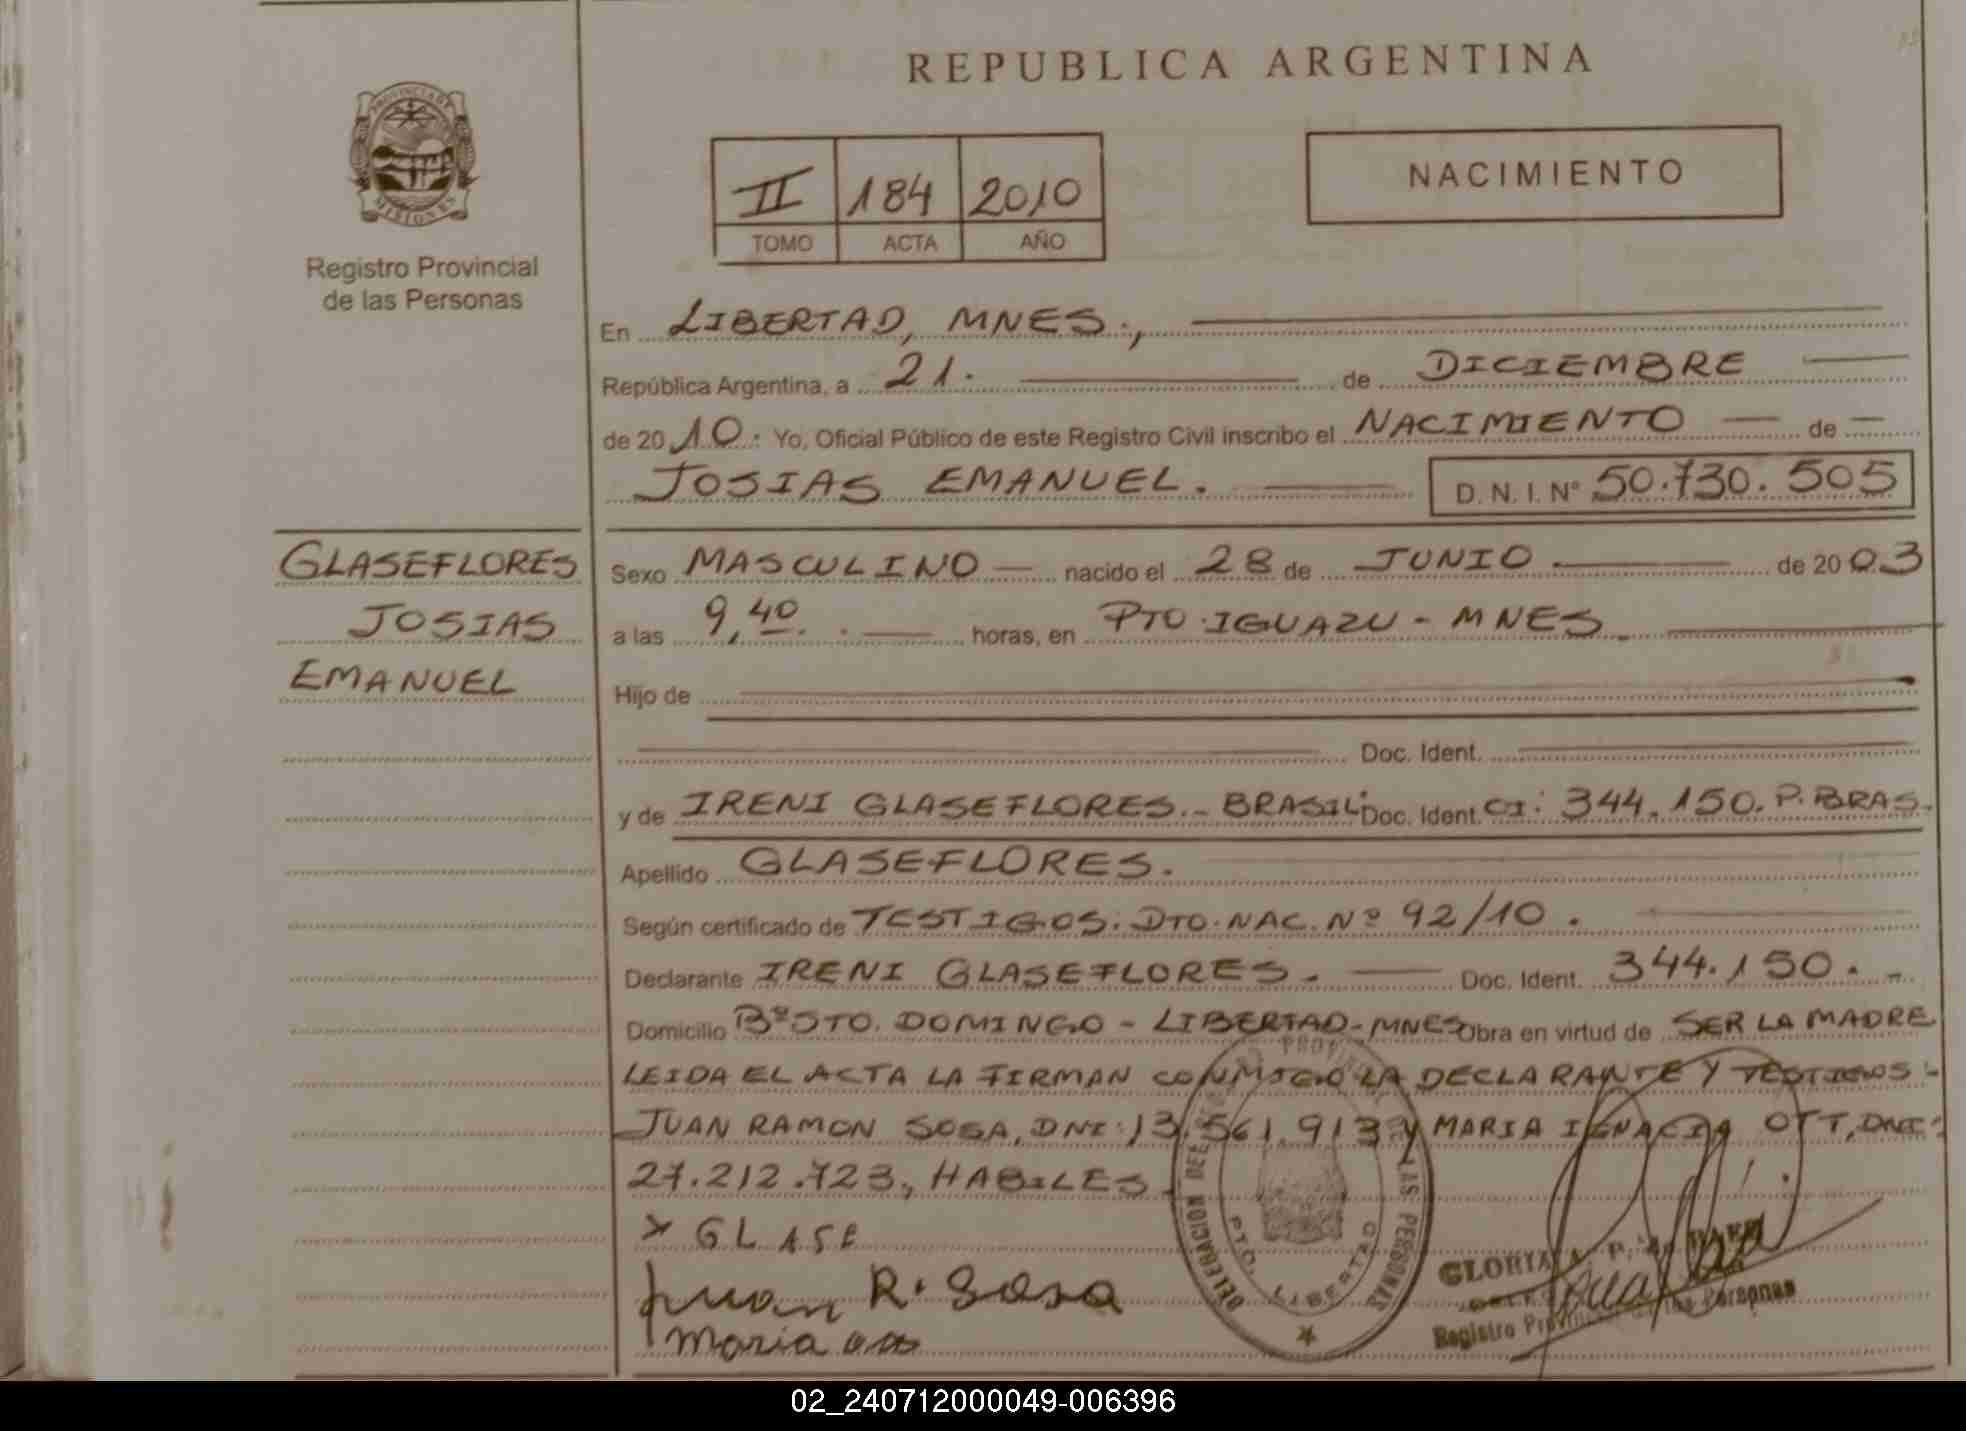 REPUBLICA ARGENTINA
PROVINCIA DE
MISIONES
Registro Provincial
de las Personas
II 184 2010
TOMO ACTA AÑO
NACIMIENTO
En LIBERTAD, MNES.,
República Argentina, a 21. de DICIEMBRE
de 2010. Yo, Oficial Público de este Registro Civil inscribo el NACIMIENTO — de —
JOSIAS EMANUEL. D. N. I. Nº 50.730.505
GLASEFLORES
JOSIAS
EMANUEL
Sexo MASCULINO — nacido el 28 de JUNIO de 2003
a las 9,40. horas, en PTO. IGUAZU - MNES.
Hijo de
Doc. Ident.
y de IRENI GLASEFLORES.- BRASIL. Doc. Ident. CI: 344.150. P. BRAS.
Apellido GLASEFLORES.
Según certificado de TESTIGOS. DTO. NAC. Nº 92/10.
Declarante IRENI GLASEFLORES. Doc. Ident. 344.150. -
Domicilio Bº STO. DOMINGO - LIBERTAD - MNES Obra en virtud de SER LA MADRE
LEIDA EL ACTA LA FIRMAN CONMIGO LA DECLARANTE Y TESTIGOS -
JUAN RAMON SOSA, DNI: 13.561.913 y MARIA IGNACIA OTT, DNI:
27.212.723, HABILES.
x GLASE
Juan R. Sosa
Maria ott
DELEGACION DEL REGISTRO PROVINCIAL DE LAS PERSONAS
PTO. LIBERTAD
GLORIA
Registro Provincial de las Personas
02_240712000049-006396